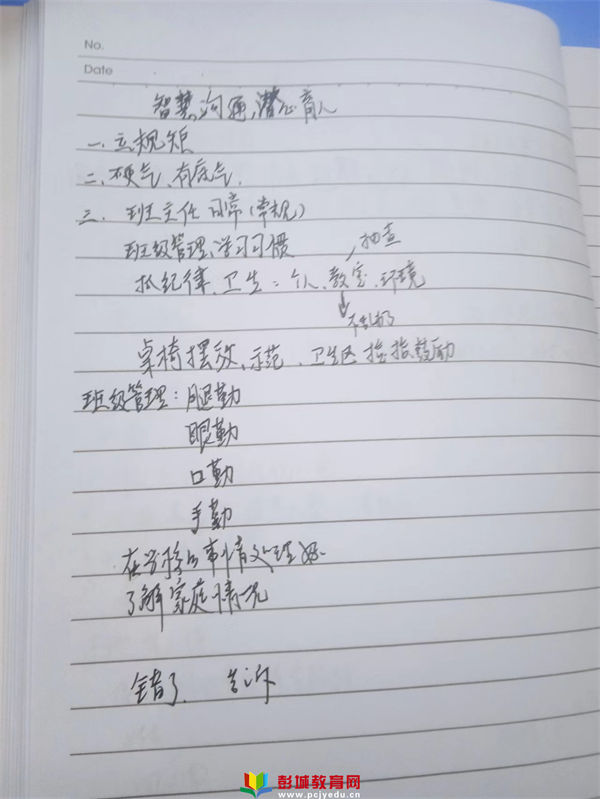 No.
Date
智慧沟通,潜心育人
一、立规矩
二、硬气、有底气.
三、班主任日常(常规)
班级管理、学习习惯
抽查
抓纪律、卫生:个人、教室、环境
不乱扔
桌椅摆放、示范、卫生区 鼓励
班级管理:腿勤
眼勤
口勤
手勤
在学校的事情处理好.
了解家庭情况
错了、告诉
彭城教育网
www.pcjyedu.cn